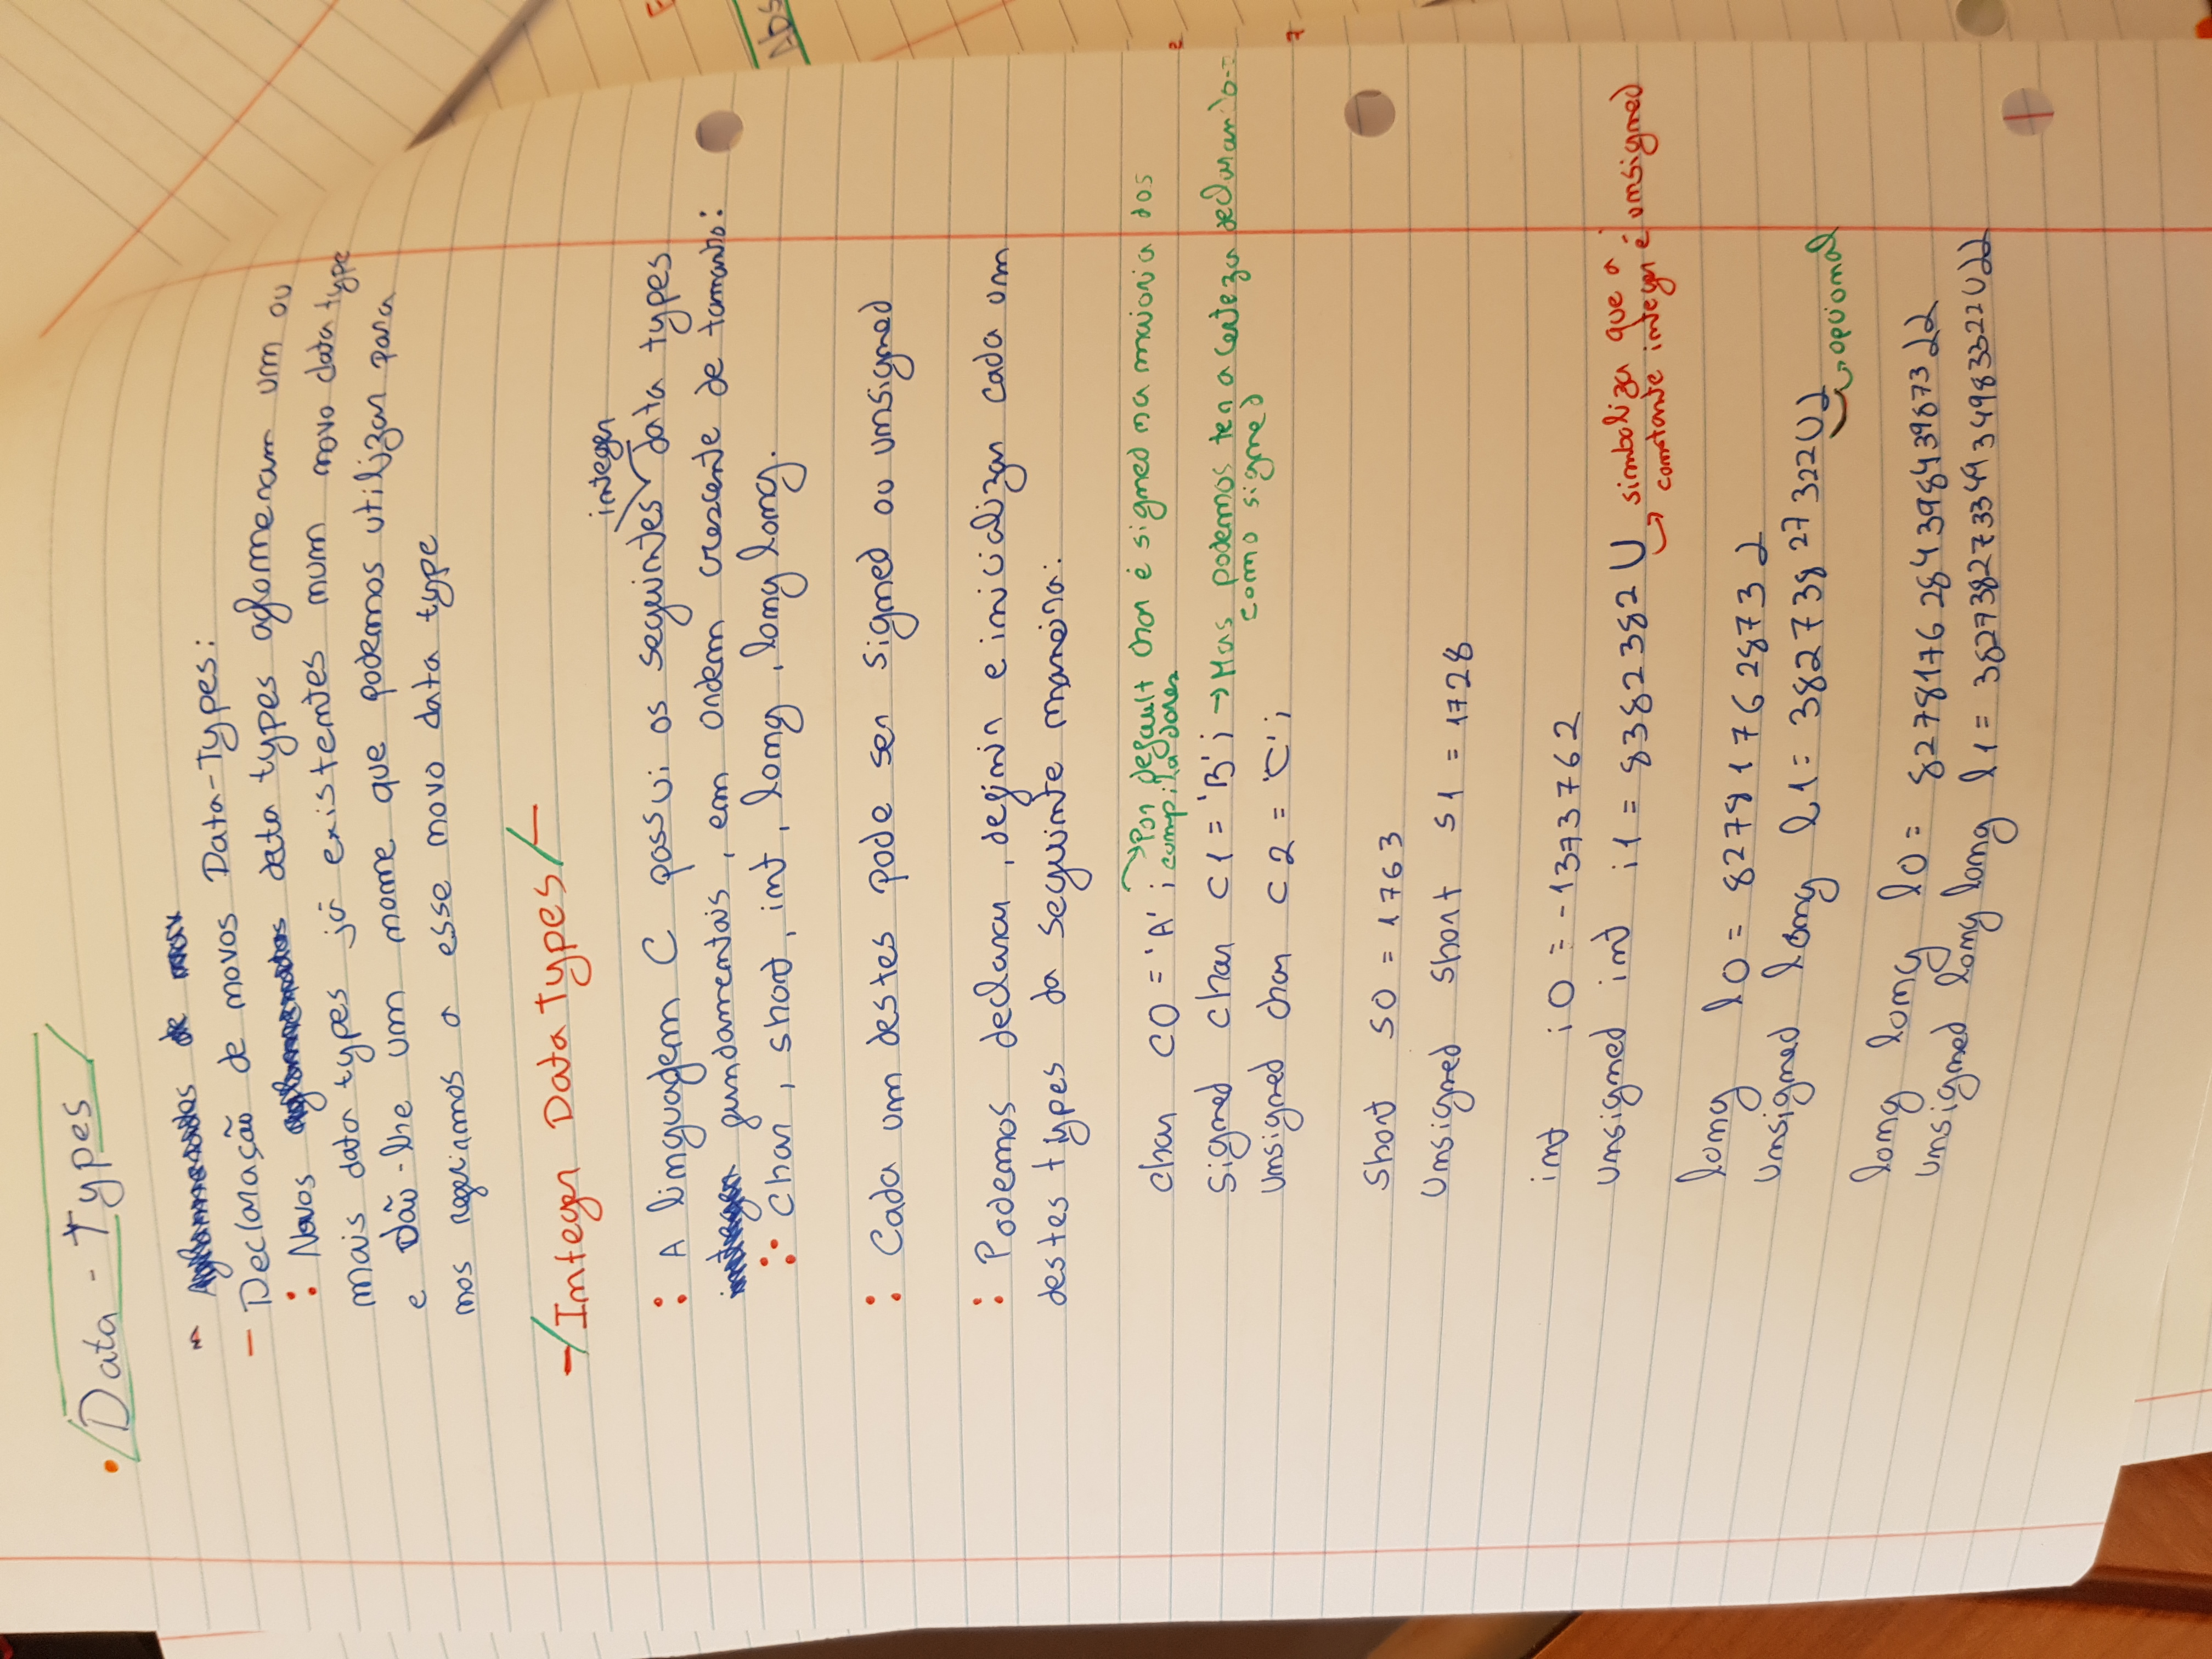 • Data - Types
- Declaração de novos Data-Types:
: Novos data types aglomeram um ou
mais data types já existentes num novo data type
e Dão-lhe um nome que podemos utilizar para
nos referirmos a esse novo data type
-/Integer Data Types/-
integer
: A linguagem C possui os seguintes data types
fundamentais, em ordem crescente de tamanho:
:· Char, short, int, long, long long.
: Cada um destes pode ser signed ou unsigned
: Podemos declarar, definir e inicializar cada um
destes types da seguinte maneira:
char c0 = 'A'; → Por default char é signed na maioria dos
compiladores
signed char c1 = 'B'; → Mas podemos ter a certeza declarando-o
como signed
unsigned char c2 = 'C';
Short s0 = 1763
Unsigned short s1 = 1728
int i0 = -1373762
unsigned int i1 = 8382382U → simboliza que a
constante integer é unsigned
long l0 = 827817628732
unsigned long l1 = 38273827322Ul
→ opcional
long long l0 = 827817628439843987 3ll
unsigned long long l1 = 3827382733494934983322Ull
Abs